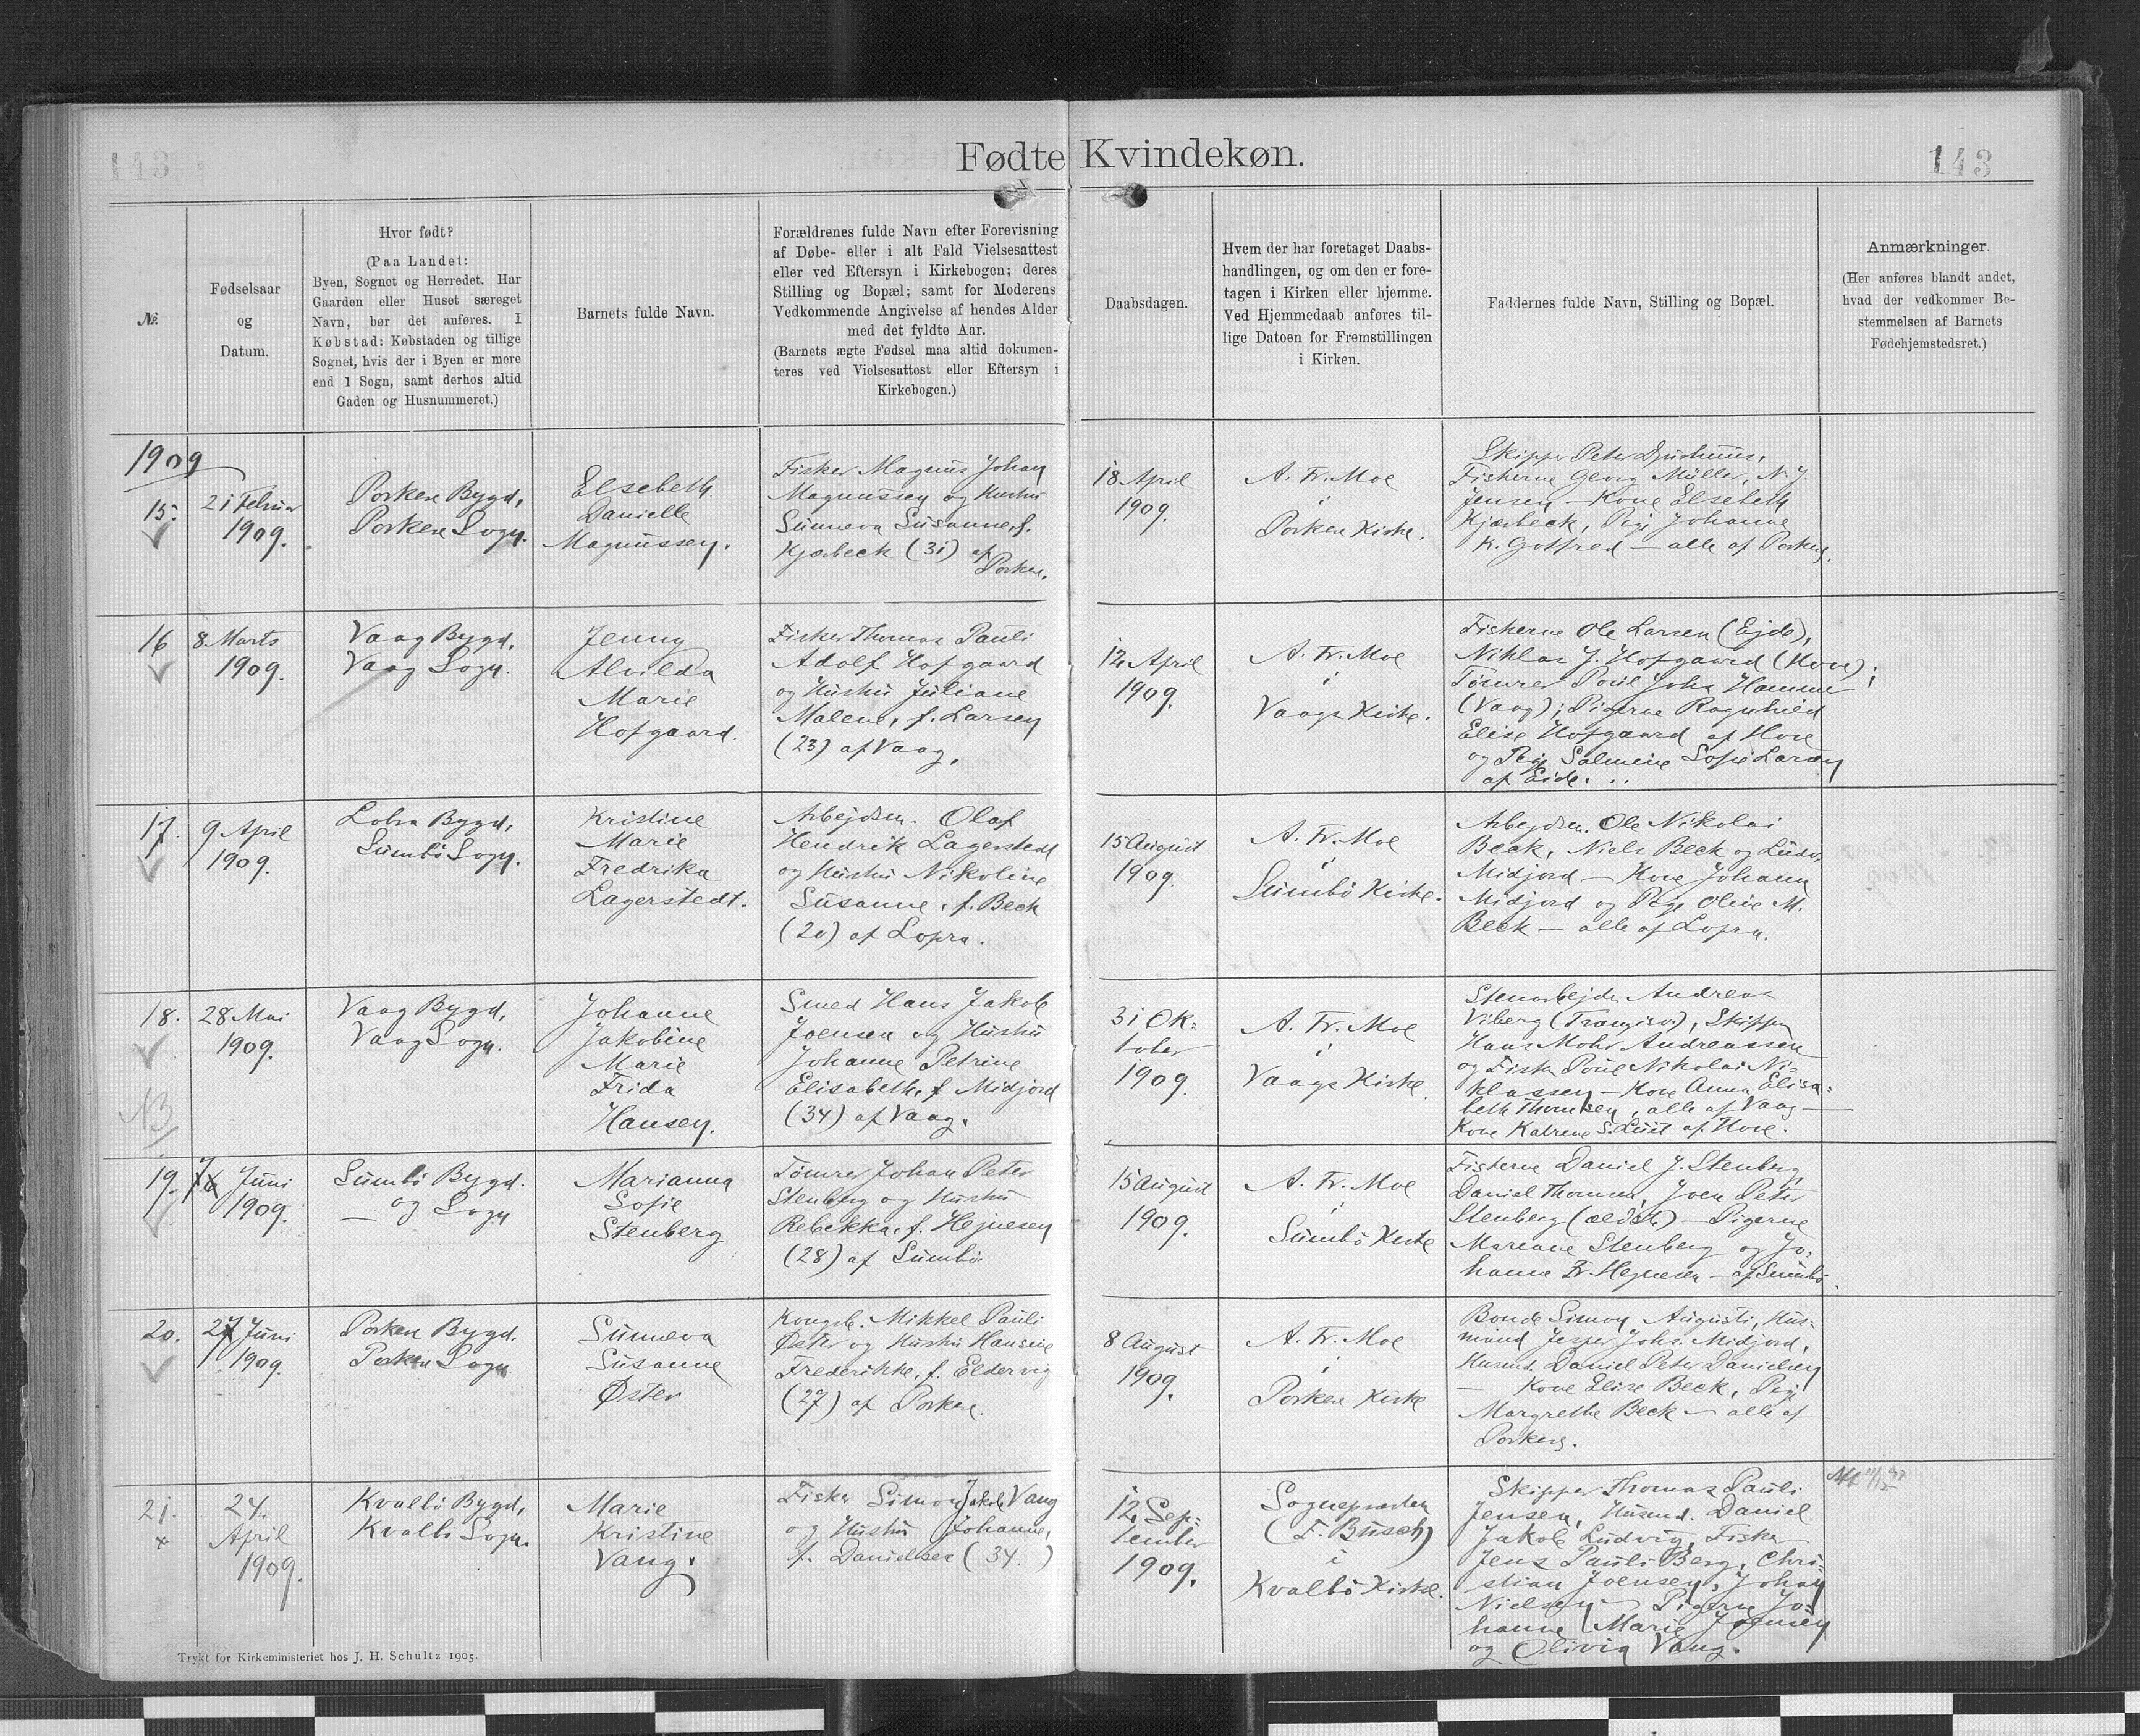 143
Fødte Kvindekøn.
143
№
Fødselsaar
og
Datum.
Hvor født?
(Paa Landet:
Byen, Sognet og Herredet. Har
Gaarden eller Huset særeget
Navn, bør det anføres. I
Købstad: Købstaden og tillige
Sognet, hvis der i Byen er mere
end 1 Sogn, samt derhos altid
Gaden og Husnummeret.)
Barnets fulde Navn.
Forældrenes fulde Navn efter Forevisning
af Døbe- eller i alt Fald Vielsesattest
eller ved Eftersyn i Kirkebogen; deres
Stilling og Bopæl; samt for Moderens
Vedkommende Angivelse af hendes Alder
med det fyldte Aar.
(Barnets ægte Fødsel maa altid dokumen-
teres ved Vielsesattest eller Eftersyn i
Kirkebogen.)
Daabsdagen.
Hvem der har foretaget Daabs-
handlingen, og om den er fore-
tagen i Kirken eller hjemme.
Ved Hjemmedaab anføres til-
lige Datoen for Fremstillingen
i Kirken.
Faddernes fulde Navn, Stilling og Bopæl.
Anmærkninger.
(Her anføres blandt andet,
hvad der vedkommer Be-
stemmelsen af Barnets
Fødehjemstedsret.)
1909
15.
21 Februar
1909.
Porkere Bygd,
Porkere Sogn.
Elsebeth
Danielle
Magnussen.
Fisker Magnus Johan
Magnussen og Hustru
Sunneva Susanne, f.
Kjærbeck (31) af
Porkere.
18 April
1909.
A. Fr. Moe
i
Porkere Kirke.
Skipper Peter Djurhuus,
Fiskerne Georg Müller, N. J.
Jensen — Kone Elsebeth
Kjærbeck, Pige Johanne
K. Gotfred — alle af Porkere.
16
8 Marts
1909.
Vaag Bygd,
Vaag Sogn.
Jenny
Alvilda
Marie
Hofgaard.
Fisker Thomas Pauli
Adolf Hofgaard
og Hustru Juliane
Malene, f. Larsen
(23) af Vaag.
12 April
1909.
A. Fr. Moe
i
Vaags Kirke.
Fiskerne Ole Larsen (Ejde),
Niklas J. Hofgaard (Hove);
Tømrer Poul Johs Hammer
(Vaag); Pigerne Ragnhild
Elise Hofgaard af Hove
og Pige Salmine Sofie Larsen
af Eide.
17.
9 April
1909.
Lobra Bygd,
Sumbö Sogn.
Kristine
Marie
Fredrika
Lagerstedt.
Arbejdsm. Olaf
Hendrik Lagerstedt
og Hustru Nikoline
Susanne, f. Beck
(20) af Lopra.
15 August
1909.
A. Fr. Moe
i
Sumbö Kirke.
Arbejdsm. Ole Nikolai
Beck, Niels Beck og Ludv.
Midjord — Kone Johanne
Midjord og Pige Oline M.
Beck — alle af Lopra.
18.
28 Mai
1909.
Vaag Bygd,
Vaag Sogn.
NB
Johanne
Jakobine
Marie
Frida
Hansen.
Smed Hans Jakob
Joensen og Hustru
Johanne Petrine
Elisabeth, f. Midjord
(34) af Vaag.
31 Ok-
tober
1909.
A. Fr. Moe
i
Vaags Kirke.
Stenarbejder Andreas
Viberg (Trangisv.), Skipper
Hans Mohr Andreassen
og Fisker Poul Nikolai Ni-
klassen — Kone Anna Elisa-
beth Thomsen, alle af Vaag —
Kone Katrine S. Luit af Hove.
19.
7 Juni
1909.
Sumbö Bygd.
— og Sogn
Marianna
Sofie
Stenberg
Tømrer Johan Peter
Stenberg og Hustru
Rebekka, f. Hejnesen
(28) af Sumbö
15 August
1909.
A. Fr. Moe
i
Sumbö Kirke
Fiskerne Daniel J. Stenberg,
Daniel Thomsen, Joen Peter
Stenberg (ældst) — Pigerne
Mariane Stenberg og Jo-
hanna Fr. Hejnesen — af Sumbö.
20.
27 Juni
1909.
Porkere Bygd.
Porkere Sogn
Sunneva
Susanne
Øster
Kongsb. Mikkel Pauli
Øster og Hustru Hansine
Frederikke, f. Eldervig
(27) af Porkere.
8 August
1909.
A. Fr. Moe
i
Porkere Kirke
Bonde Simon Augusti, Hus-
mand Jesper Johs. Midjord,
Husmd. Daniel Peter Danielsen
— Kone Elise Beck, Pige
Margrethe Beck — alle af
Porkere.
21.
24.
April
1909.
Kvalbö Bygd,
Kvalbö Sogn.
Marie
Kristine
Vang.
Fisker Simon Jakob Vang
og Hustru Johanne,
f. Danielsen (34.)
12 Sep-
tember
1909.
Sognepræsten
(F. Busch)
i
Kvalbö Kirke.
Skipper Thomas Pauli
Jensen, Husmd. Daniel
Jakob Ludvig, Fisker
Jens Pauli Berg, Chri-
stian Joensen, Johan
Nielsen — Pigerne Jo-
hanne Marie Joensen
og Olivia Vang.
Trykt for Kirkeministeriet hos J. H. Schultz 1905.